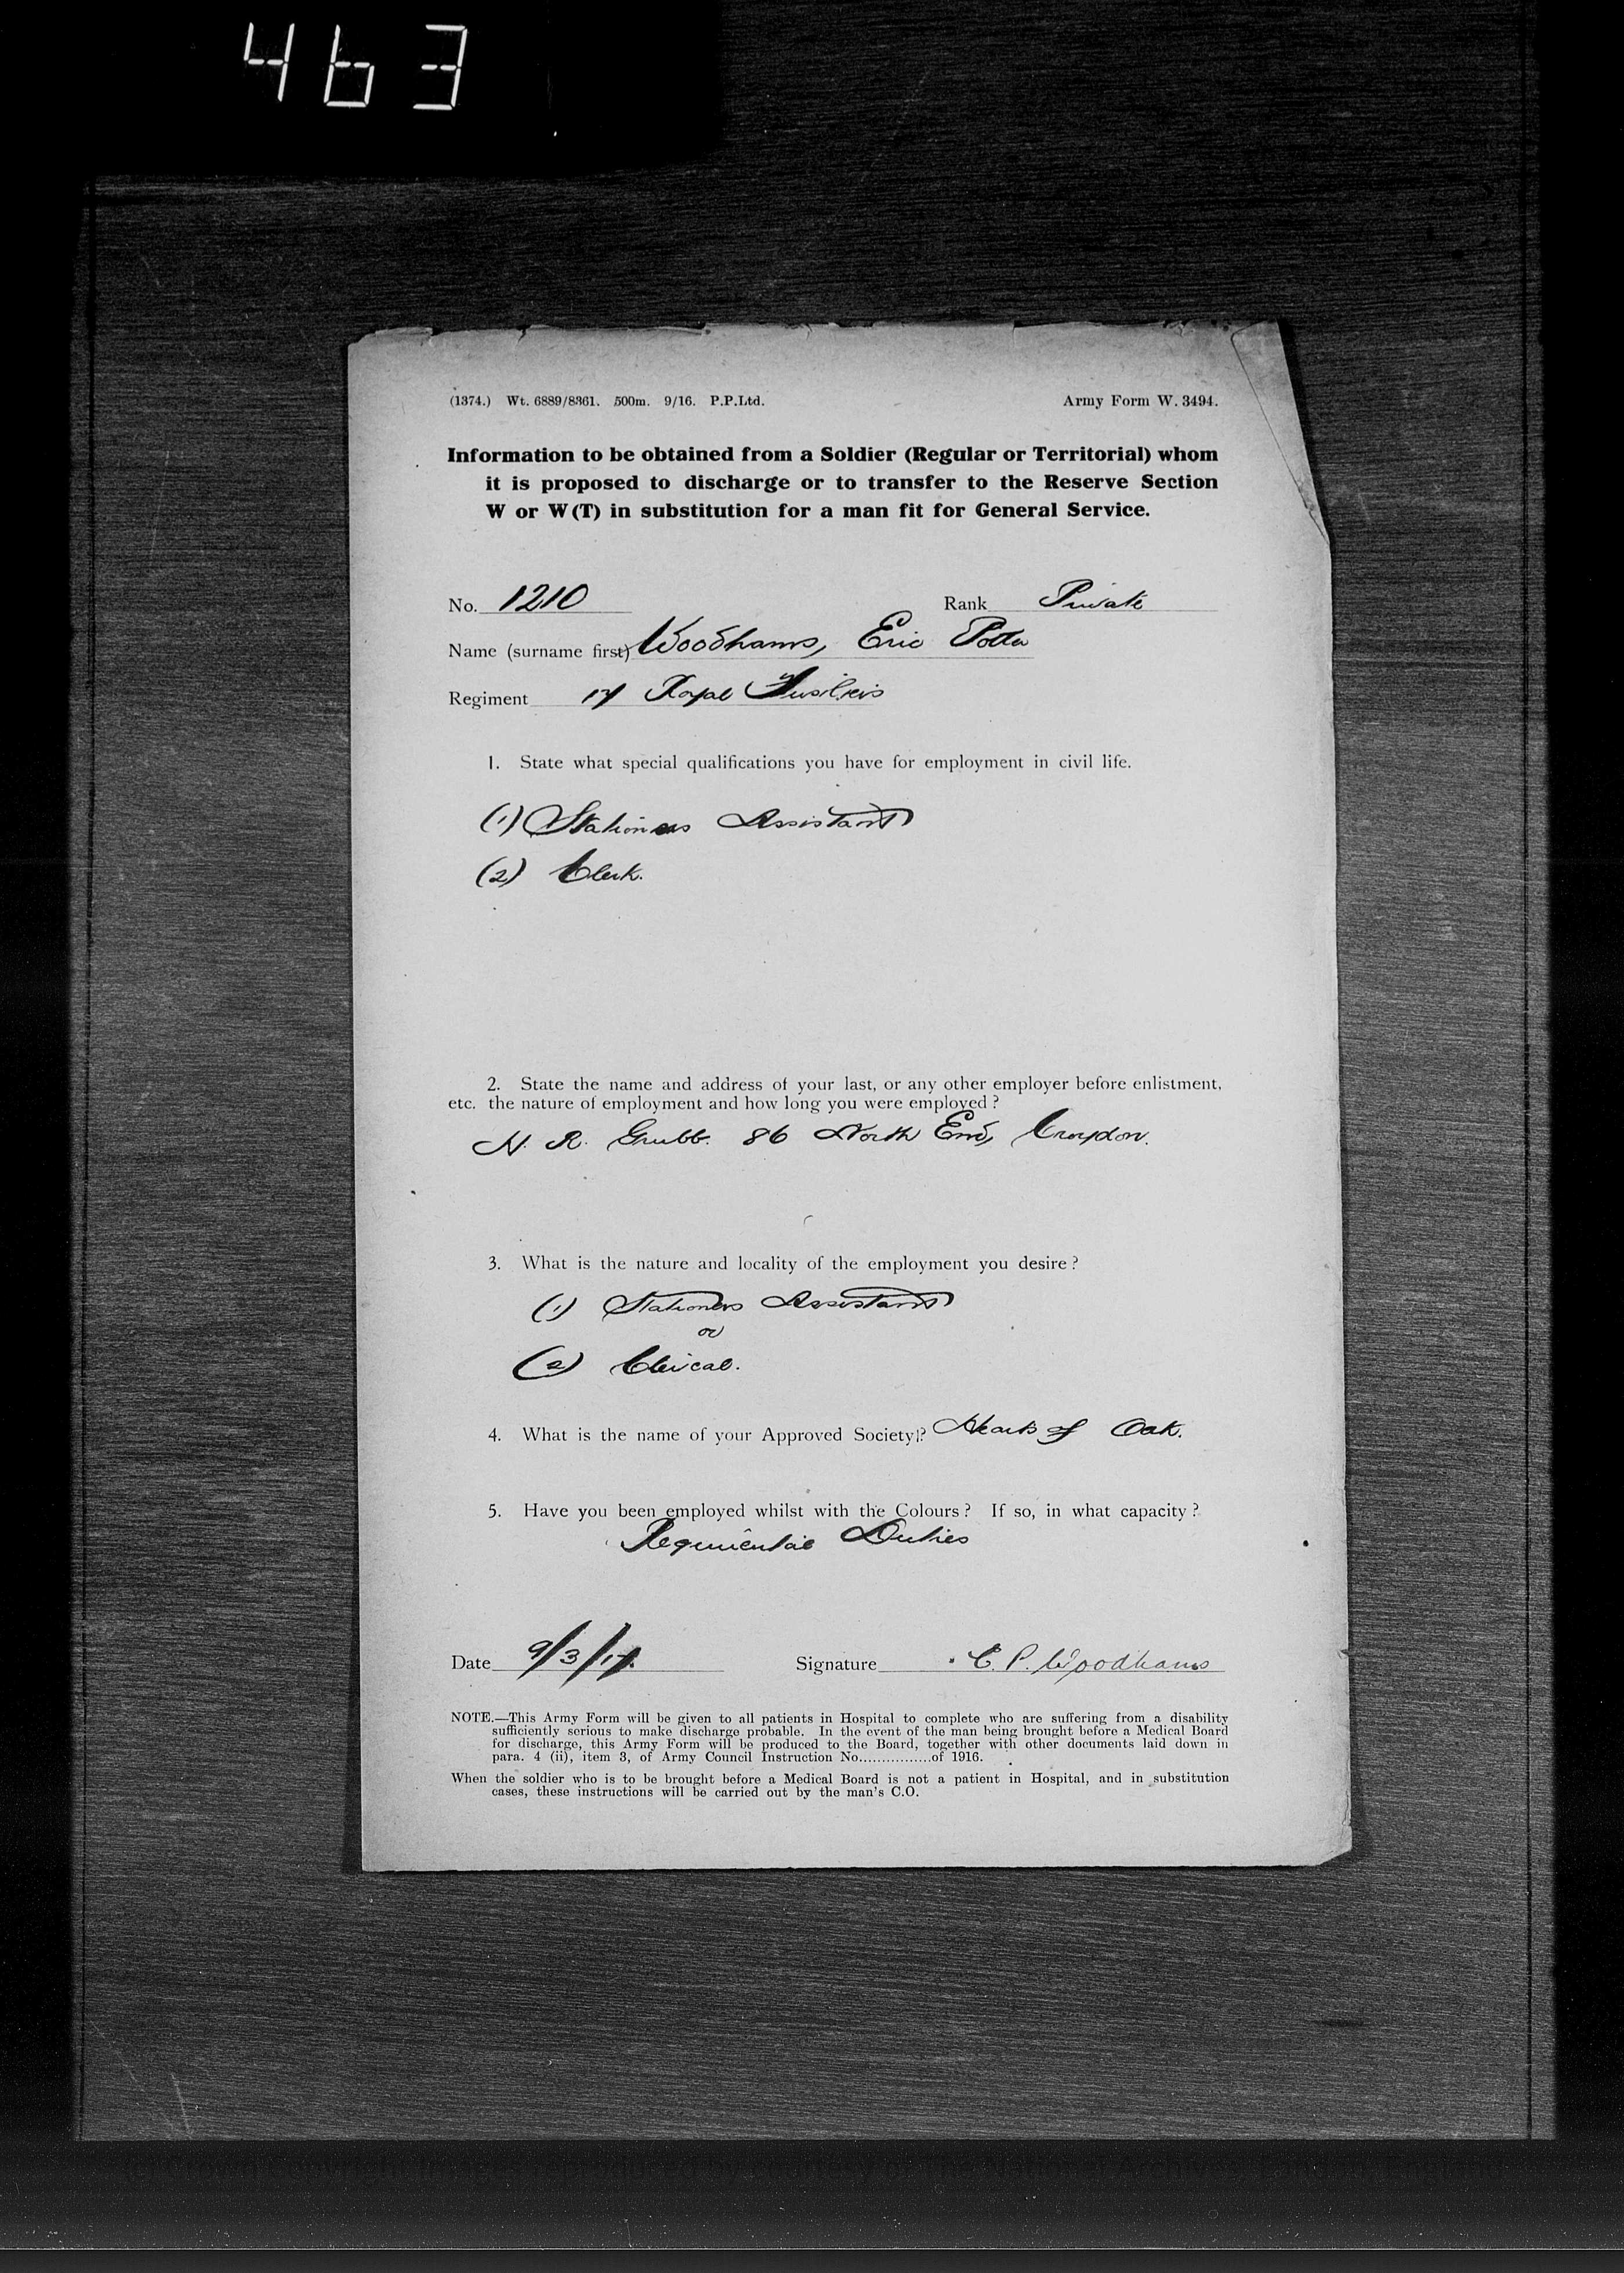 463
(1374.) Wt. 6889/8361. 500m. 9/16. P.P.Ltd. Army Form W. 3494.
Information to be obtained from a Soldier (Regular or Territorial) whom
it is proposed to discharge or to transfer to the Reserve Section
W or W(T) in substitution for a man fit for General Service.
No. 1210 Rank Private
Name (surname first) Woodhams, Eric Potter
Regiment 17 Royal Fusiliers
1. State what special qualifications you have for employment in civil life.
(1) Stationers Assistant
(2) Clerk.
2. State the name and address of your last, or any other employer before enlistment,
etc. the nature of employment and how long you were employed?
H. R. Grubb. 86 North End, Croydon.
3. What is the nature and locality of the employment you desire?
(1) Stationers Assistant
or
(2) Clerical.
4. What is the name of your Approved Society? Hearts of Oak.
5. Have you been employed whilst with the Colours? If so, in what capacity?
Regimental Duties
Date 9/3/17. Signature E. P. Woodhams
NOTE.—This Army Form will be given to all patients in Hospital to complete who are suffering from a disability
sufficiently serious to make discharge probable. In the event of the man being brought before a Medical Board
for discharge, this Army Form will be produced to the Board, together with other documents laid down in
para. 4 (ii), item 3, of Army Council Instruction No................of 1916.
When the soldier who is to be brought before a Medical Board is not a patient in Hospital, and in substitution
cases, these instructions will be carried out by the man's C.O.